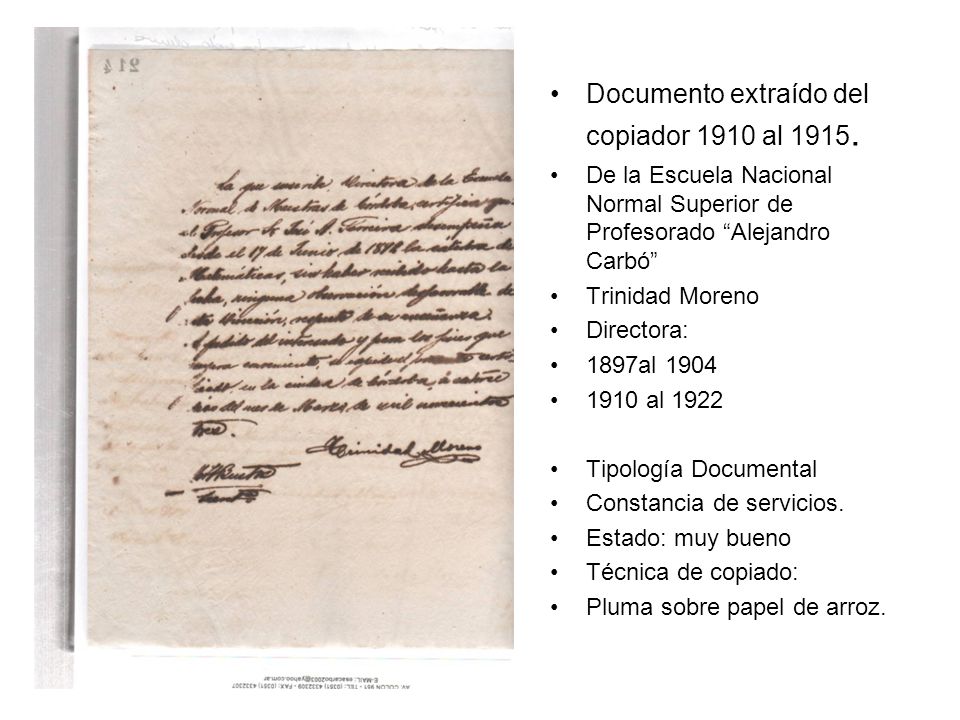 214
La que suscribe, Directora de la Escuela
Normal de Maestras de Córdoba, certifica que
el Profesor Sr. José N. Ferreira desempeña
desde el 17 de Junio de 1898 la cátedra de
Matemáticas, sin haber recibido hasta la
fecha, ninguna observación desfavorable de
esta Dirección, respecto de su enseñanza.
A pedido del interesado y para los fines que
conveniente, se expide el presente certi-
ficado, en la ciudad de Córdoba, á catorce
días del mes de Marzo de mil novecientos
tres.
Trinidad Moreno
AV. COLON 951 - TEL.: (0351) 4332309 - FAX: (0351) 4332307
E-MAIL: esacarbo2003@yahoo.com.ar
• Documento extraído del
copiador 1910 al 1915.
• De la Escuela Nacional
Normal Superior de
Profesorado “Alejandro
Carbó”
• Trinidad Moreno
• Directora:
• 1897al 1904
• 1910 al 1922
• Tipología Documental
• Constancia de servicios.
• Estado: muy bueno
• Técnica de copiado:
• Pluma sobre papel de arroz.